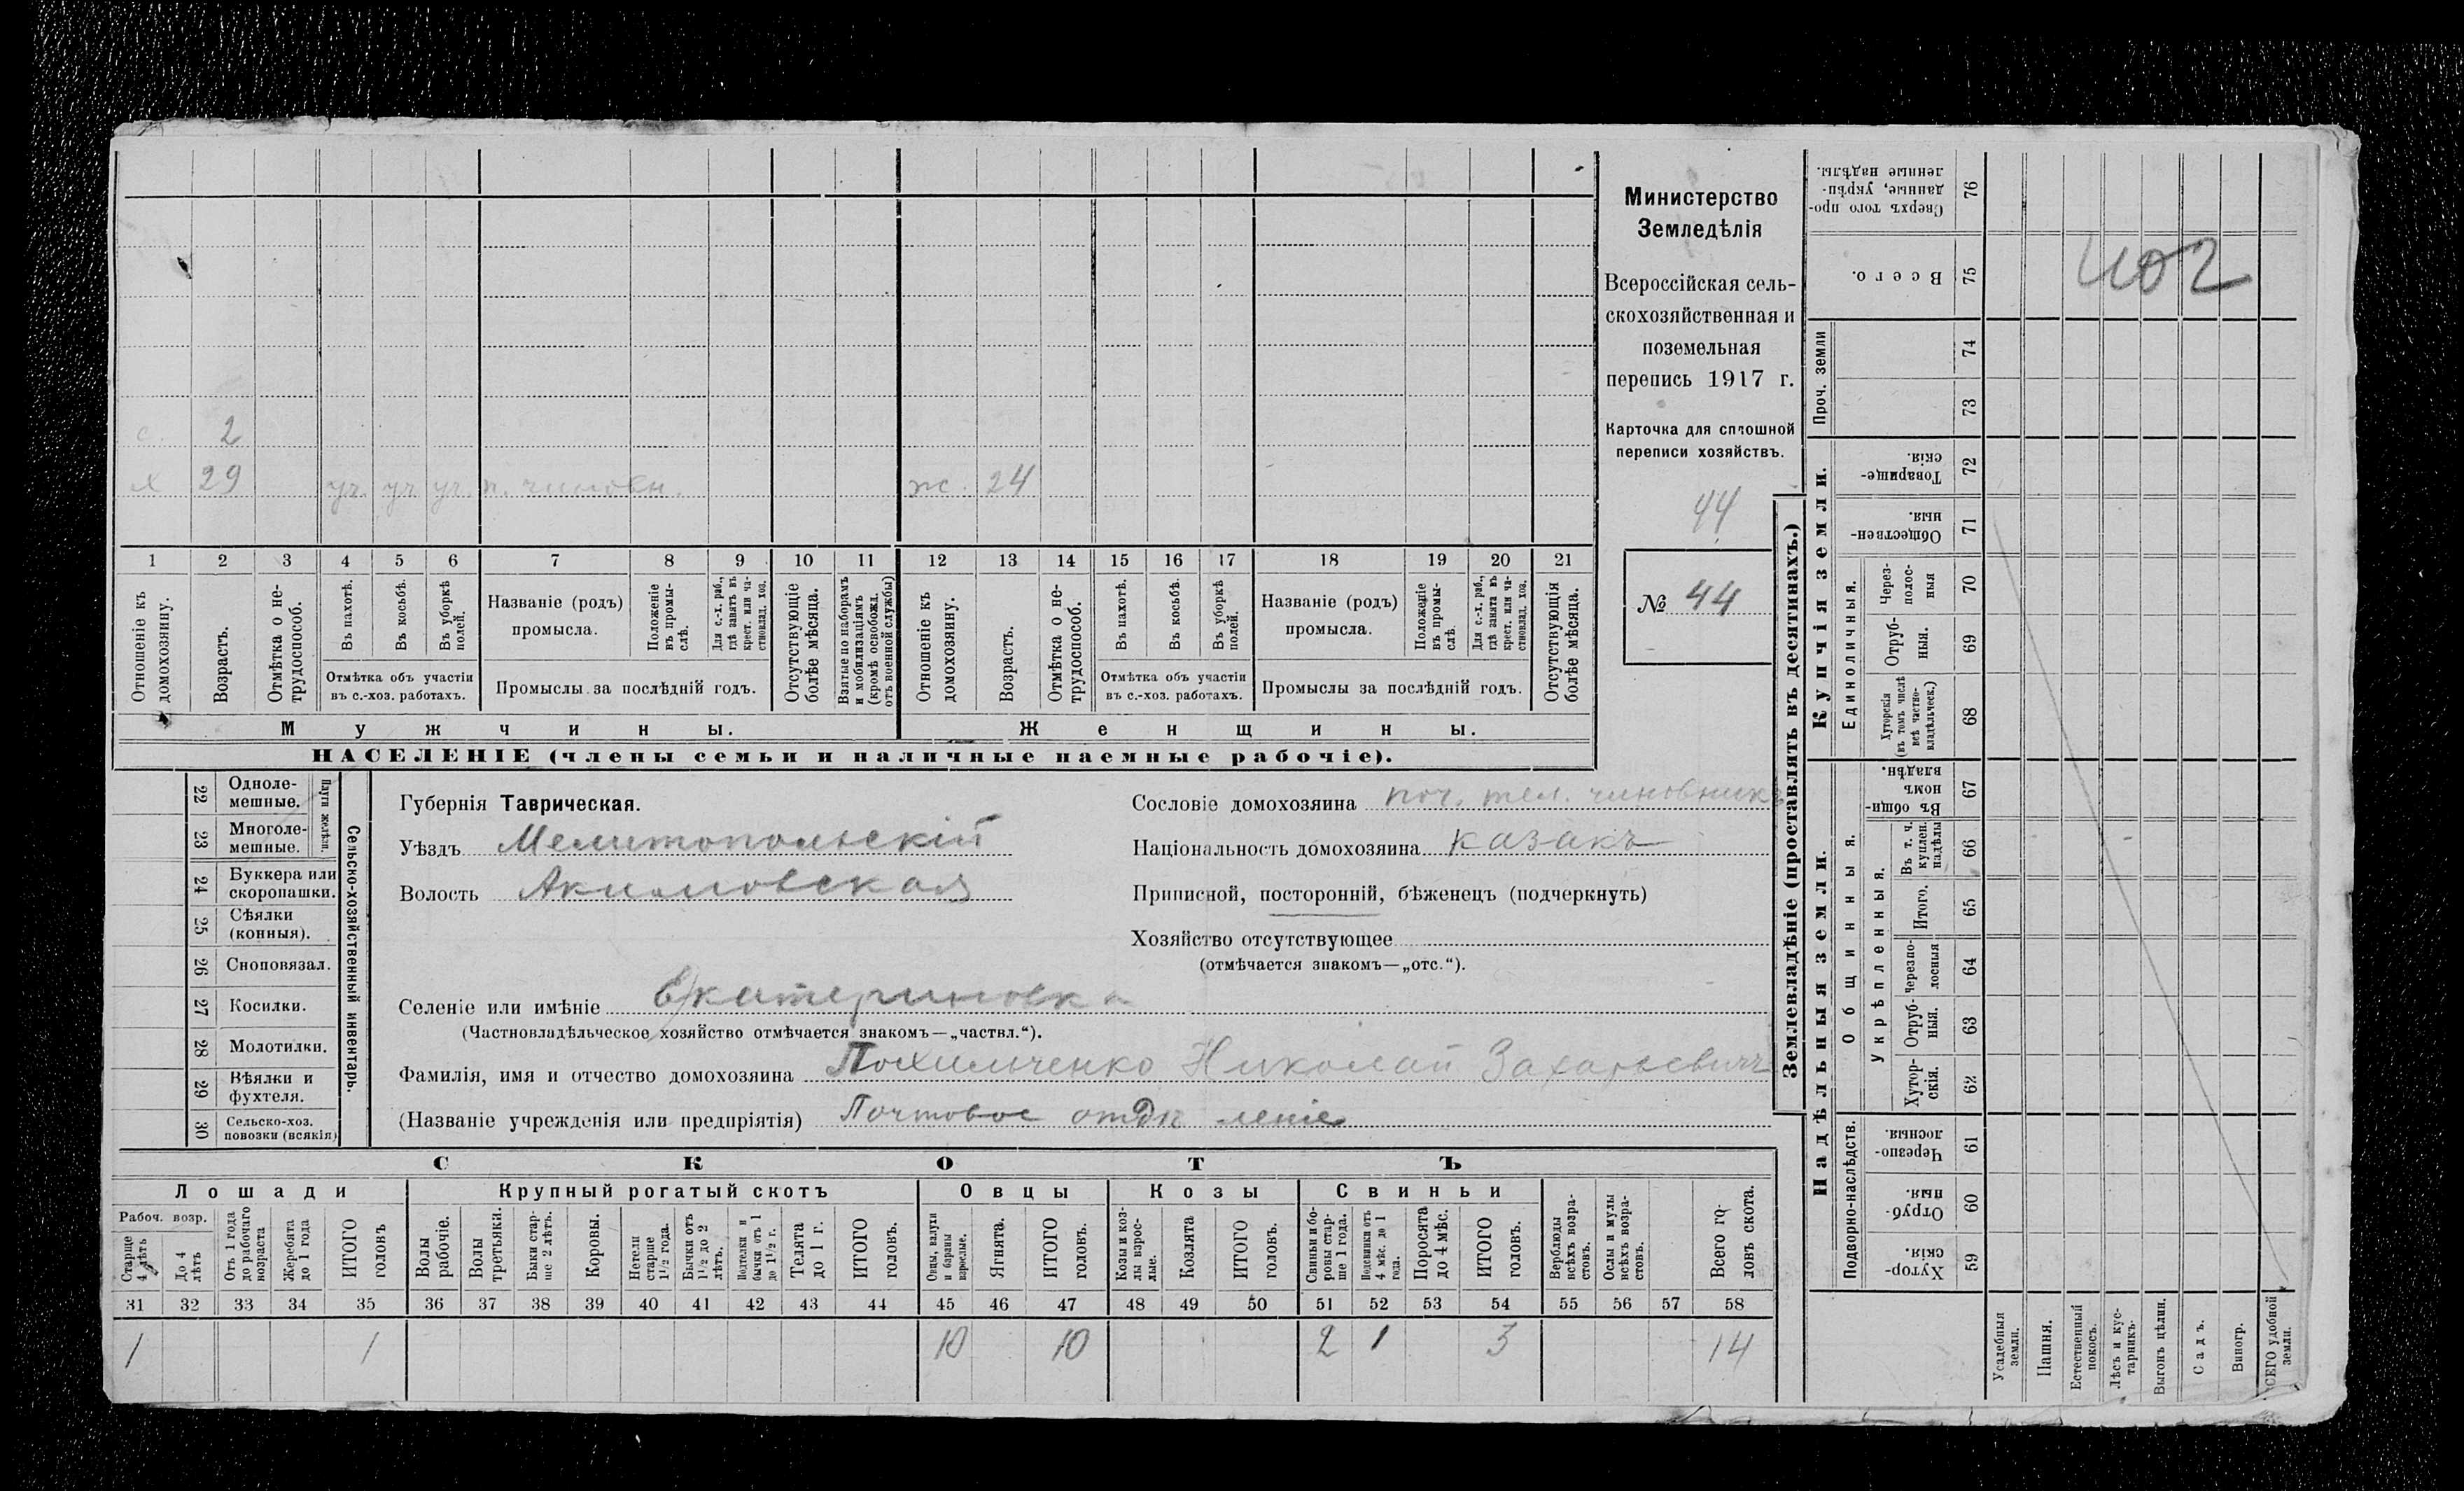 с. 2
х 29 уч. уч. уч. п. чиновн. ж. 24
1 2 3 4 5 6 7 8 9 10 11 12 13 14 15 16 17 18 19 20 21
Отношеніе къ домохозяину.
Возрастъ.
Отмѣтка о не-трудоспособ.
Въ пахотѣ.
Въ косьбѣ.
Въ уборкѣ полей.
Отмѣтка объ участіи
въ с.-хоз. работахъ.
Названіе (родъ)
промысла.
Положеніе въ промы-слѣ.
Для с.-х. раб., гдѣ занятъ въ крест. или ча-стновлад. хоз.
Промыслы за послѣдній годъ.
Отсутствующіе болѣе мѣсяца.
Взятые по наборамъ и мобилизаціямъ (кромѣ освобожд. отъ военной службы)
Отношеніе къ домохозяину.
Возрастъ.
Отмѣтка о не-трудоспособ.
Въ пахотѣ.
Въ косьбѣ.
Въ уборкѣ полей.
Отмѣтка объ участіи
въ с.-хоз. работахъ.
Названіе (родъ)
промысла.
Положеніе въ промы-слѣ.
Для с.-х. раб., гдѣ занята въ крест. или ча-стновлад. хоз.
Промыслы за послѣдній годъ.
Отсутствующія болѣе мѣсяца.
Мужчины.
Женщины.
НАСЕЛЕНІЕ (члены семьи и наличные наемные рабочіе).
Министерство
Земледѣлія
Всероссійская сель-
скохозяйственная и
поземельная
перепись 1917 г.
Карточка для сплошной
переписи хозяйствъ.
44
№ 44
22 Одноле-
мешные.
23 Многоле-
мешные.
Плуги желѣзн.
24 Буккера или
скоропашки.
25 Сѣялки
(конныя).
26 Сноповязал.
27 Косилки.
28 Молотилки.
29 Вѣялки и
фухтеля.
30 Сельско-хоз.
повозки (всякія)
Сельско-хозяйственный инвентарь.
Губернія Таврическая.
Уѣздъ Мелитопольскій
Волость Акимовская
Сословіе домохозяина поч. тел. чиновникъ
Національность домохозяина казакъ
Приписной, посторонній, бѣженецъ (подчеркнуть)
Хозяйство отсутствующее
(отмѣчается знакомъ—„отс.“).
Селеніе или имѣніе Екатериновка
(Частновладѣльческое хозяйство отмѣчается знакомъ—„частвл.“).
Фамилія, имя и отчество домохозяина Похильченко Николай Захарьевичъ
(Названіе учрежденія или предпріятія) Почтовое отдѣленіе
СКОТЪ
Лошади
Крупный рогатый скотъ
Овцы
Козы
Свиньи
Рабоч. возр.
Старше 4 лѣтъ
До 4 лѣтъ
Отъ 1 года до рабочаго возраста
Жеребята до 1 года
ИТОГО головъ
Волы рабочіе.
Волы третьяки.
Быки стар-ше 2 лѣтъ.
Коровы.
Нетели старше 1 1/2 года.
Бычки отъ 1 1/2 до 2 лѣтъ.
Подтелки и бычки отъ 1 до 1 1/2 г.
Телята до 1 г.
ИТОГО головъ.
Овцы, валухи и бараны взрослые.
Ягнята.
ИТОГО головъ.
Козы и коз-лы взрос-лые.
Козлята
ИТОГО головъ.
Свиньи и бо-ровы стар-ше 1 года.
Подсвинки отъ 4 мѣс. до 1 года.
Поросята до 4 мѣс.
ИТОГО головъ.
Верблюды всѣхъ возра-стовъ.
Ослы и мулы всѣхъ возра-стовъ.
Всего го-ловъ скота.
31 32 33 34 35 36 37 38 39 40 41 42 43 44 45 46 47 48 49 50 51 52 53 54 55 56 57 58
1 1 10 10 2 1 3 14
Землевладѣніе (проставлять въ десятинахъ.)
Сверхъ того про-данные, укрѣп-ленные надѣлы. 76
Всего. 75
Проч. земли
74
73
Купчія земли.
Товарище-скія. 72
Обществен-ныя. 71
Единоличныя.
Через-полос-ныя 70
Отруб-ныя. 69
Хуторскія (въ томъ числѣ всѣ частно-владѣльческ.) 68
Надѣльныя земли.
Общинныя.
Въ общи-номъ владѣн. 67
Укрѣпленныя.
Въ т. ч. куплен. надѣлы 66
Итого. 65
Черезпо-лосныя 64
Отруб-ныя. 63
Хутор-скія. 62
Подворно-наслѣдств.
Черезпо-лосныя. 61
Отруб-ныя. 60
Хутор-скія. 59
Усадебныя земли.
Пашня.
Естественный покосъ.
Лѣсъ и кус-тарникъ.
Выгонъ цѣлин.
Садъ.
Виногр.
ВСЕГО удобной земли.